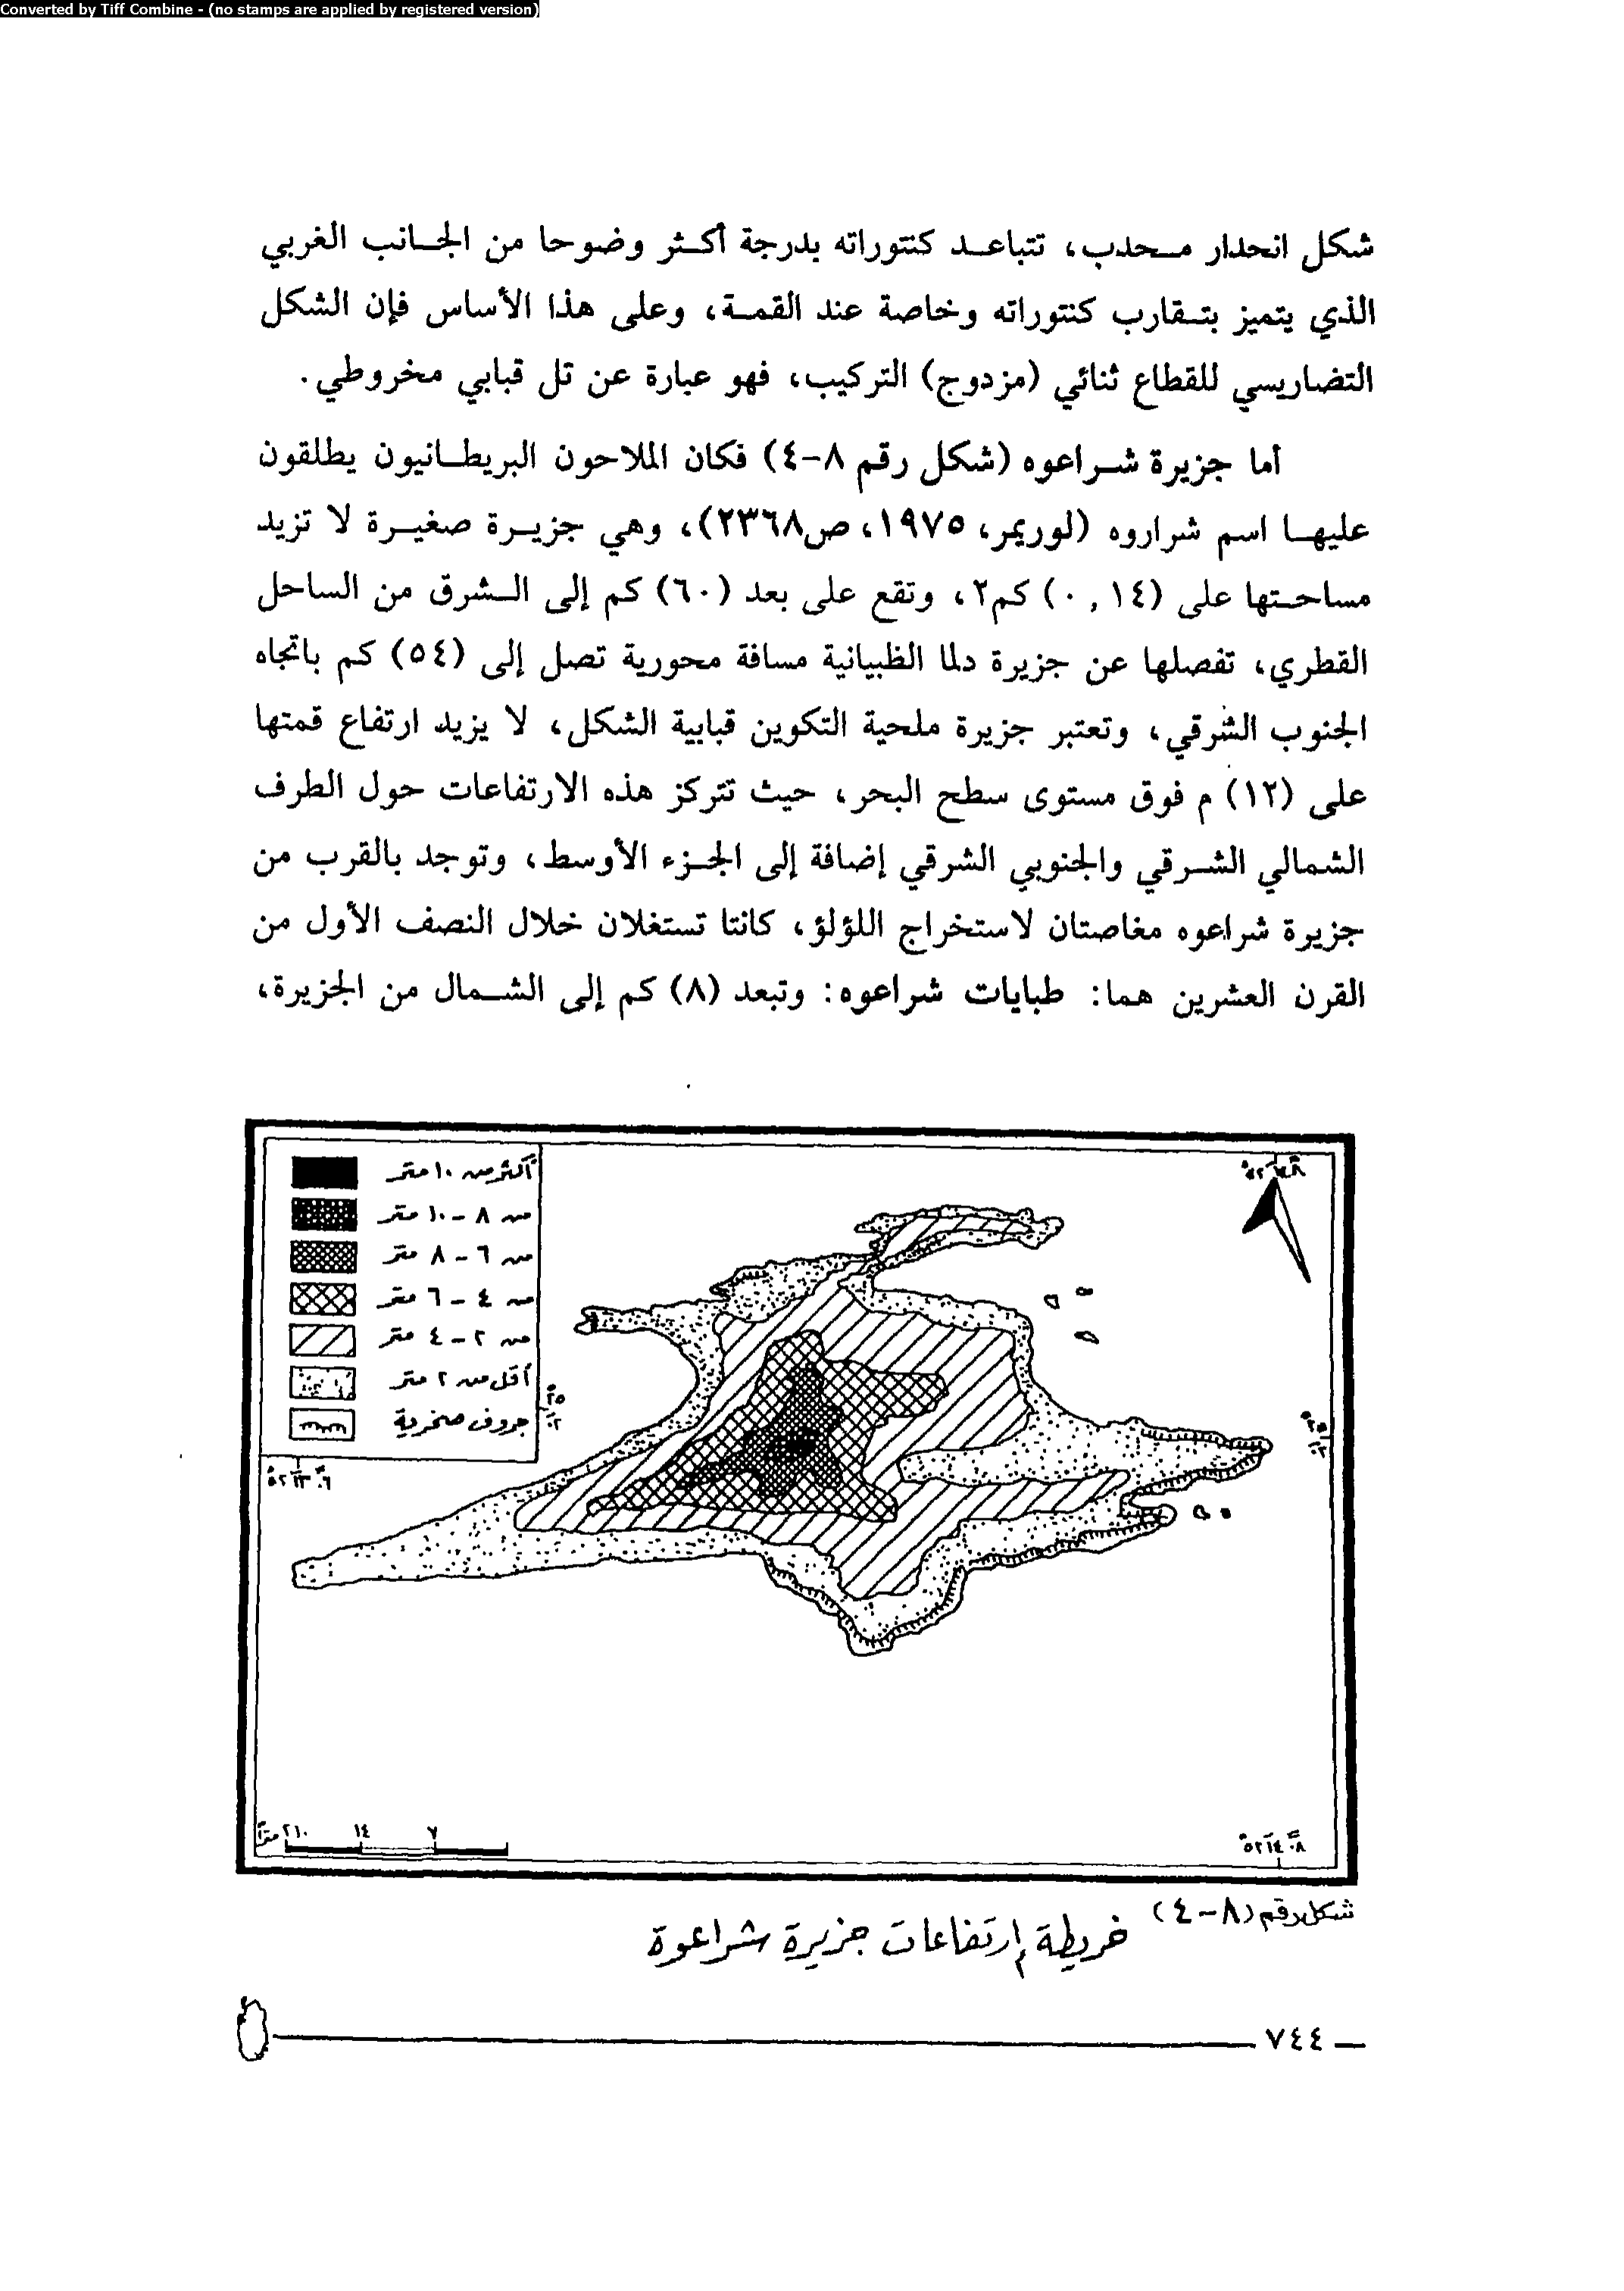 Converted by Tiff Combine - (no stamps are applied by registered version)
شكل انحدار محدب، تتباعد كنتوراته بدرجة أكثر وضوحا من الجانب الغربي
الذي يتميز بتقارب كنتوراته وخاصة عند القمة، وعلى هذا الأساس فإن الشكل
التضاريسي للقطاع ثنائي (مزدوج) التركيب، فهو عبارة عن تل قبابي مخروطي.
أما جزيرة شراعوه (شكل رقم ٨-٤) فكان الملاحون البريطانيون يطلقون
عليها اسم شراروه (لوريمر، ١٩٧٥، ص٢٣٦٨)، وهي جزيرة صغيرة لا تزيد
مساحتها على (٠,١٤) كم٢، وتقع على بعد (٦٠) كم إلى الشرق من الساحل
القطري، تفصلها عن جزيرة دلما الظبيانية مسافة محورية تصل إلى (٥٤) كم باتجاه
الجنوب الشرقي، وتعتبر جزيرة ملحية التكوين قبابية الشكل، لا يزيد ارتفاع قمتها
على (١٢) م فوق مستوى سطح البحر، حيث تتركز هذه الارتفاعات حول الطرف
الشمالي الشرقي والجنوبي الشرقي إضافة إلى الجزء الأوسط، وتوجد بالقرب من
جزيرة شراعوه مغاصتان لاستخراج اللؤلؤ، كانتا تستغلان خلال النصف الأول من
القرن العشرين هما: طبايات شراعوه: وتبعد (٨) كم إلى الشمال من الجزيرة،
أكثر من ١٠ متر
من ٨ - ١٠ متر
من ٦ - ٨ متر
من ٤ - ٦ متر
من ٢ - ٤ متر
أقل من ٢ متر
جروف صخرية
٧ ١٤ ٢١٠ مترا
شكل رقم (٨-٤) خريطة إرتفاعات جزيرة شراعوة
٧٤٤